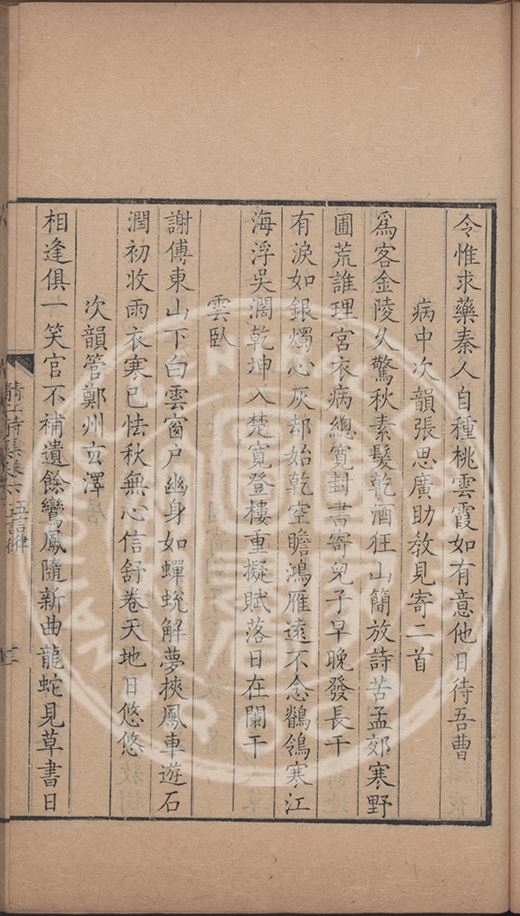 令惟求藥秦人自種桃雲霞如有意他日待吾曹
病中次韻張思廣助教見寄二首
爲客金陵久驚秋素髮乾酒狂山簡放詩苦孟郊寒野
圃荒誰理宮衣病總寬封書寄兒子早晚發長干
有淚如銀燭心灰却始乾空瞻鴻雁遠不念鶺鴒寒江
海浮吳濶乾坤入楚寬登樓重擬賦落日在闌干
雲臥
謝傅東山下白雲窗戶幽身如蟬蛻解夢挾鳳車遊石
潤初收雨衣寒已怯秋無心信舒卷天地日悠悠
次韻管鄭州玄澤居
相逢俱一笑官不補遺餘鸞鳳隨新曲龍蛇見草書日
詩集卷六 五言律